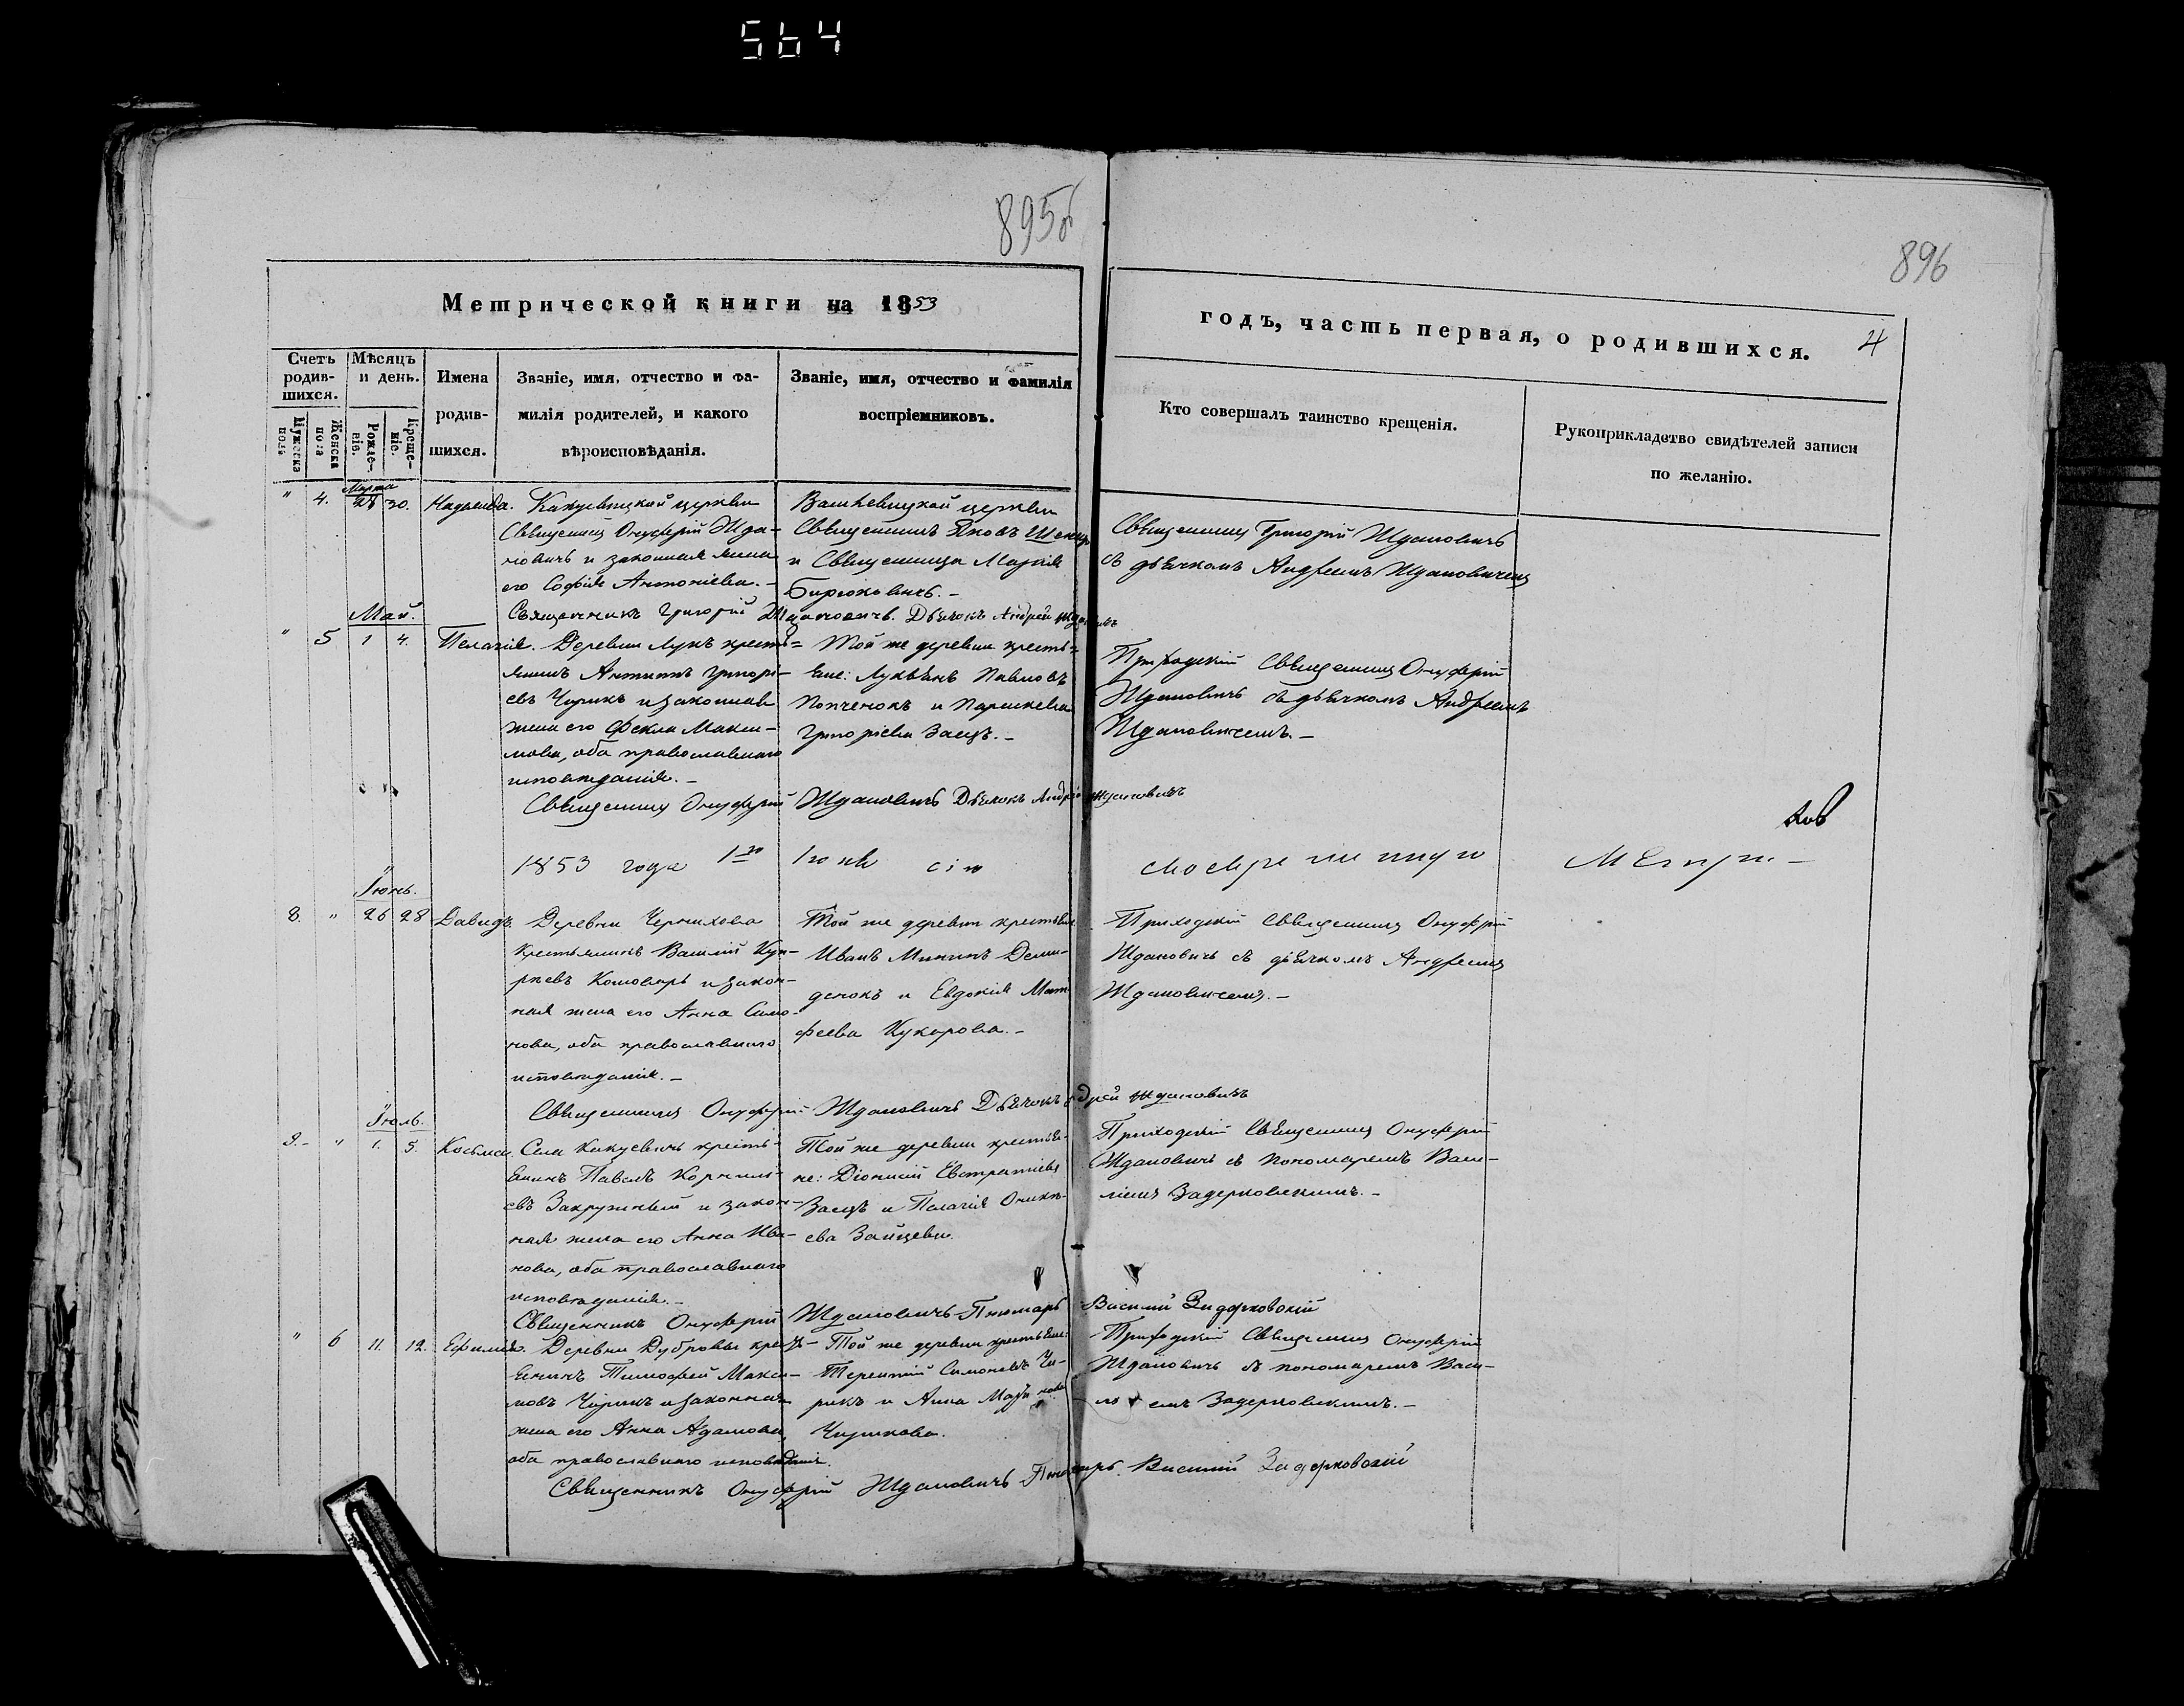 564
895б
896
Метрической книги на 1853
годъ, часть первая, о родившихся. 4
Счетъ родив-шихся.
Мѣсяцъ и день.
Имена родив-шихся.
Званіе, имя, отчество и фа-
милія родителей, и какого
вѣроисповѣданія.
Званіе, имя, отчество и фамилія
воспріемниковъ.
Кто совершалъ таинство крещенія.
Рукоприкладство свидѣтелей записи
по желанію.
Мужеска пола
Женска пола
Рожде-ніе.
Креще-ніе.
Марта
" 4. 28 30. Надежда.
церкви
Священникъ Онуфрій Жда-
новичъ и законная жена
его Софія Антоніева. –
церкви
Священникъ Яковъ
и Священница Марія
Бирюковичъ. –
Священникъ Григорій Ждановичъ
съ дьячкомъ Андреемъ Ждановичемъ
Священникъ Григорій Ждановичъ. Дьячокъ Андрей Ждановичъ
Май.
" 5 1 4. Пелагія.
Деревни Лукъ кресть-
янинъ Антипъ Григорі-
евъ Чирикъ и законная
жена его Фекла Макси-
мова, оба православнаго
исповѣданія. –
Той же деревни кресть-
яне: Лукьянъ Павловъ
Попченокъ и Параскева
Григоріева Заецъ. –
Приходскій Священникъ Онуфрій
Ждановичъ съ дьячкомъ Андреемъ
Ждановичемъ. –
Священникъ Онуфрій Ждановичъ Дьячокъ Андрей Ждановичъ
1853 года 1го Іюня сію
Іюнь.
8. " 26 28 Давидъ.
Деревни Чернихова
крестьянинъ Василій
и закон-
ная жена его Анна Симо-
нова, оба православнаго
исповѣданія. –
Той же деревни крестьяне
Иванъ Мининъ Деми-
денокъ и Евдокія Мат-
феева Кухарова. –
Приходскій Священникъ Онуфрій
Ждановичъ съ дьячкомъ Андреемъ
Ждановичемъ. –
Священникъ Онуфрій Ждановичъ Дьячокъ Андрей Ждановичъ
Іюль.
9. – " 1. 5. Косьма.
Села Какуевичъ кресть-
янинъ Павелъ Корнилі-
евъ Закружный и закон-
ная жена его Анна Ива-
нова, оба православнаго
исповѣданія. –
Той же деревни крестья-
не: Діонисій Евстратіевъ
Заецъ и Пелагія
Зайцева.
Приходскій Священникъ Онуфрій
Ждановичъ съ пономаремъ Васи-
ліемъ Задерковскимъ. –
Священникъ Онуфрій Ждановичъ Пономарь Василій Задерковскій
" 6 11. 12. Ефимія.
Деревни Дубровы крест-
янинъ Тимофей Макси-
мовъ Чирикъ и законная
жена его Анна Адамова,
оба православнаго исповѣданія.
Той же деревни крестьяне:
Терентій Симоновъ Чи-
рикъ и Анна
Чирикова.
Приходскій Священникъ Онуфрій
Ждановичъ съ пономаремъ Васи-
ліемъ Задерковскимъ. –
Священникъ Онуфрій Ждановичъ Пономарь Василій Задерковскій